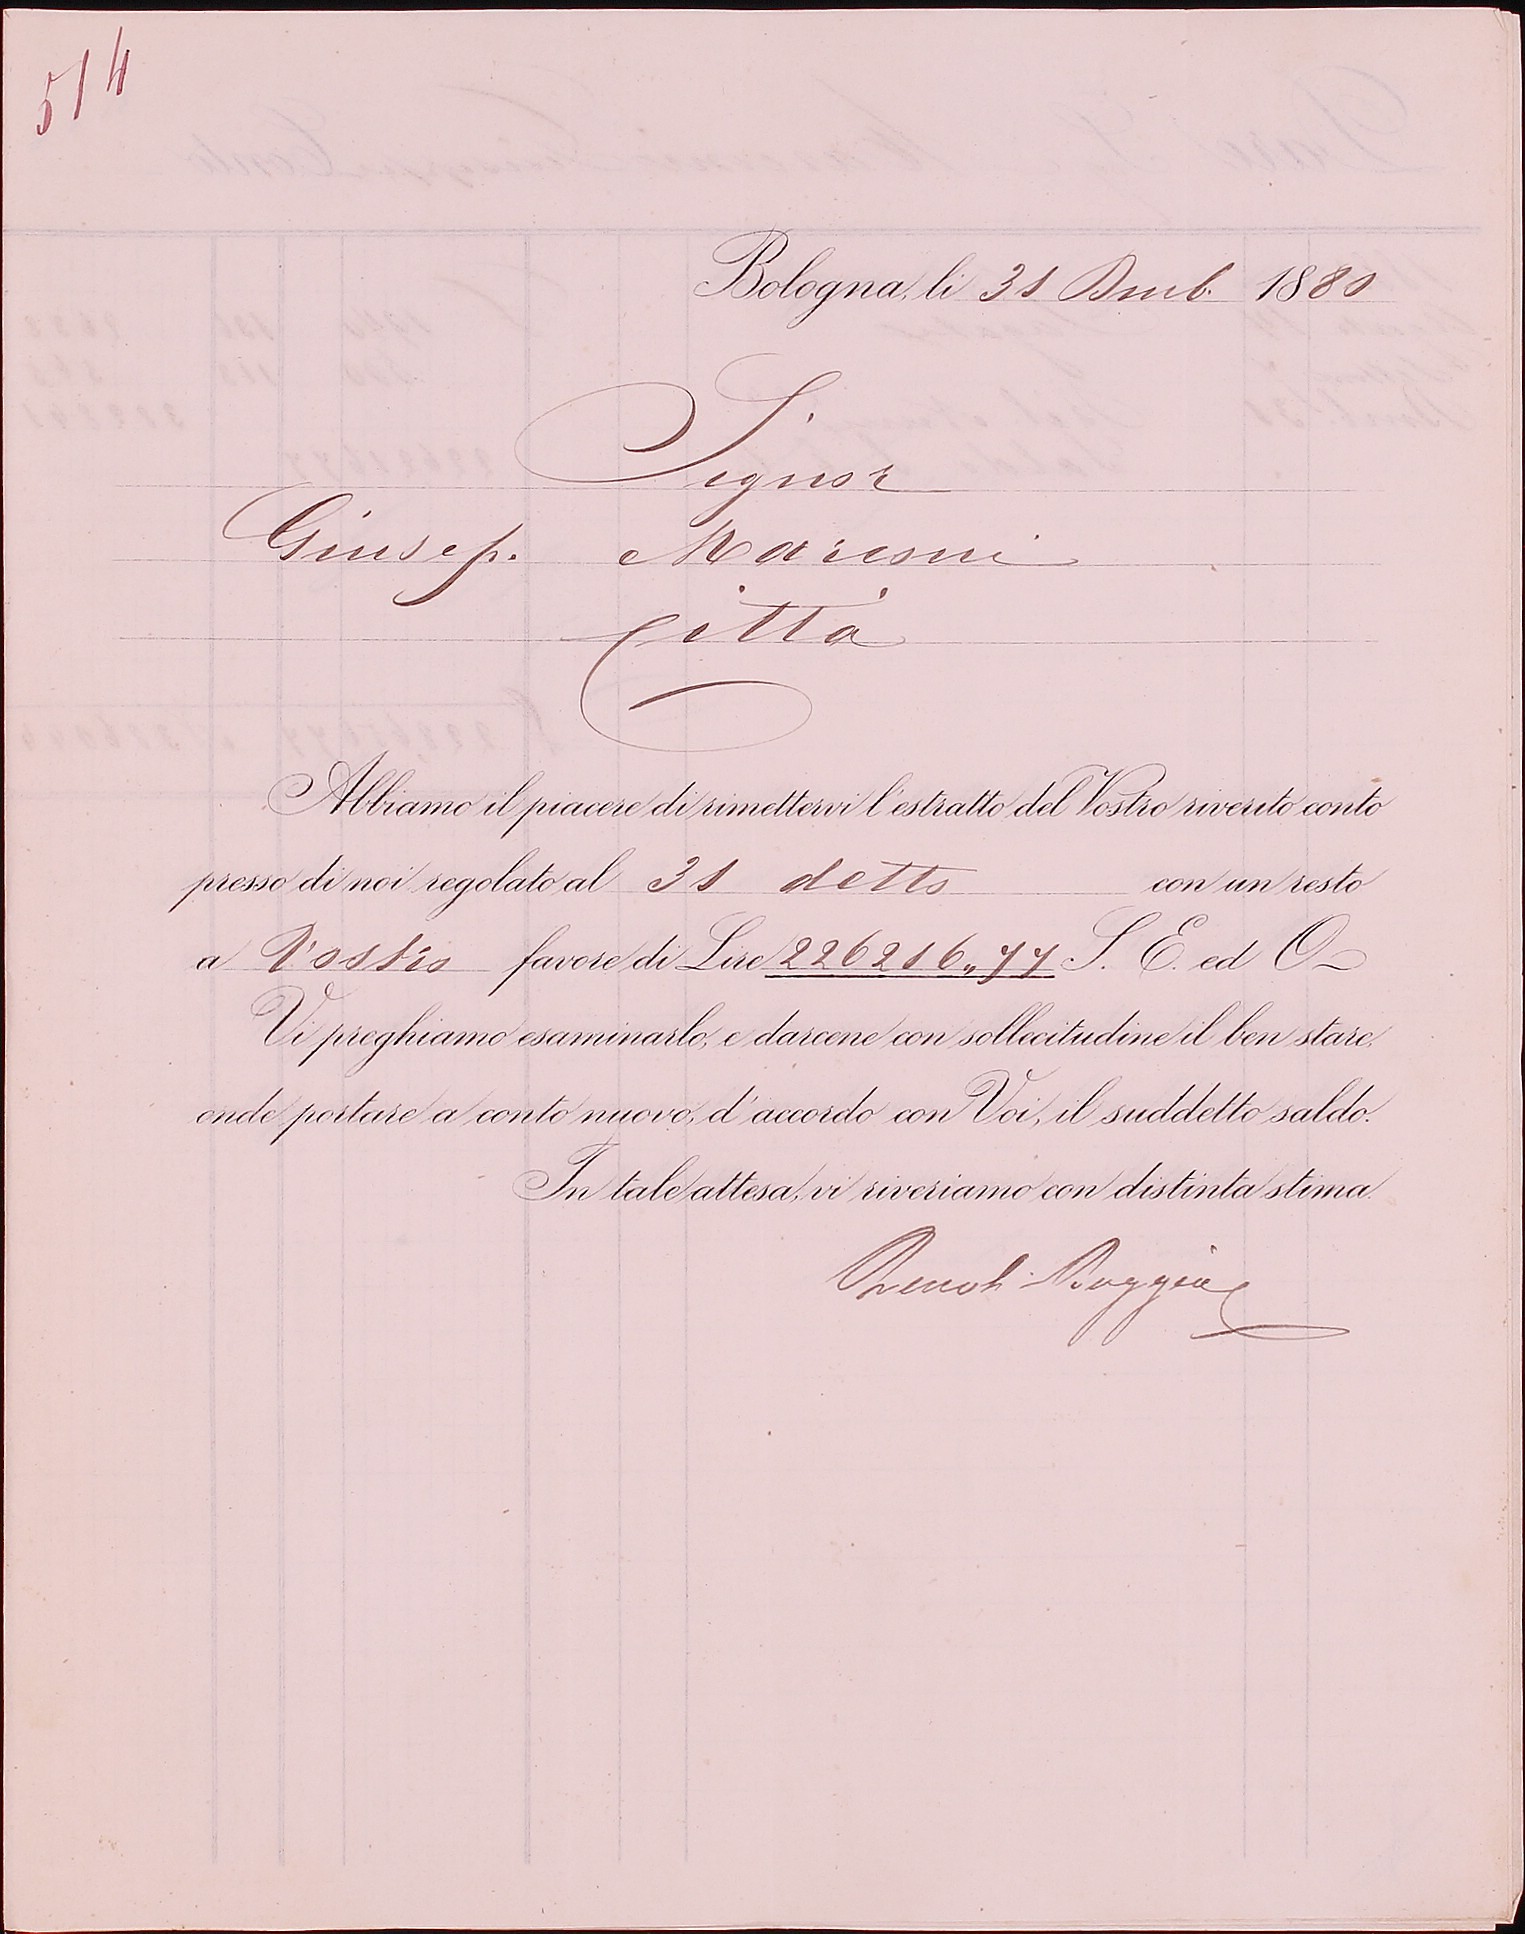 514
Bologna, li 31 Dmb. 1880
Signor
Giusep. Marconi
Città
Abbiamo il piacere di rimettervi l'estratto del Vostro riverito conto
presso di noi regolato al 31 detto con un resto
a Vostro favore di Lire 226216,,77 S. E. ed O
Vi preghiamo esaminarlo, e darcene con sollecitudine il ben stare,
onde portare a conto nuovo, d'accordo con Voi, il suddetto saldo.
In tale attesa, vi riveriamo con distinta stima.